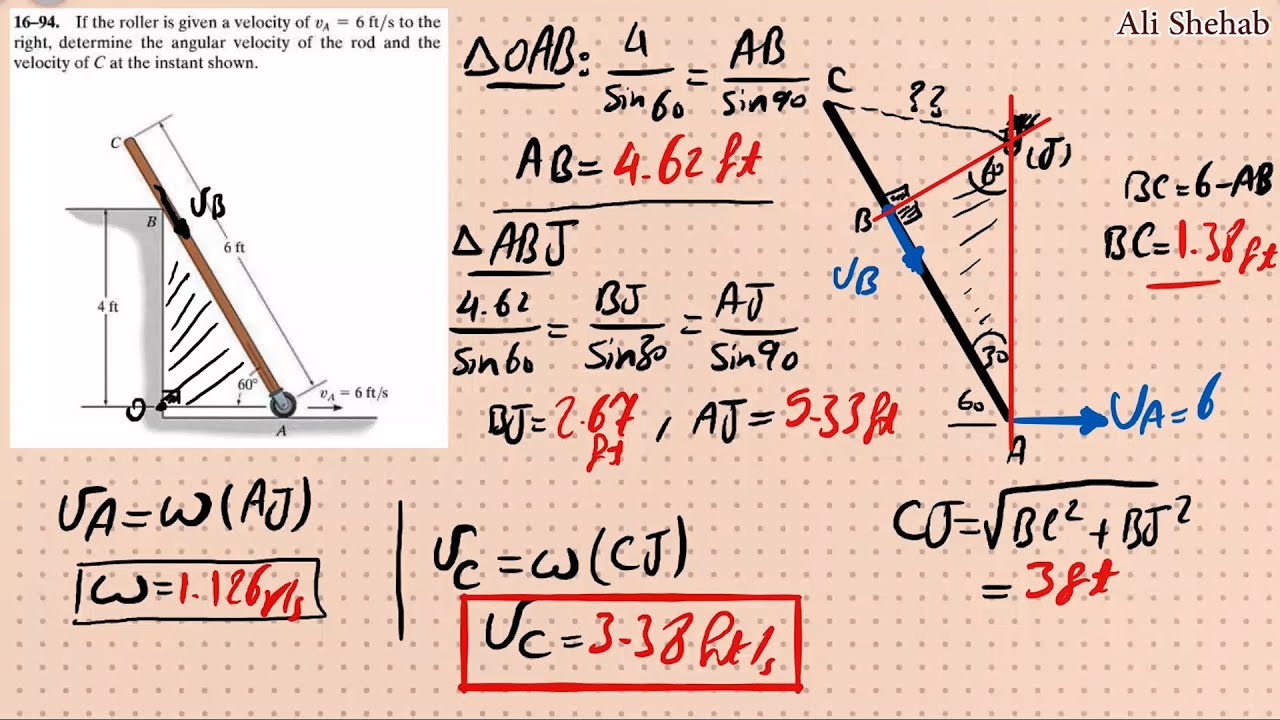 Ali Shehab
16–94. If the roller is given a velocity of vA = 6 ft/s to the
right, determine the angular velocity of the rod and the
velocity of C at the instant shown.
C
B
υB
6 ft
4 ft
60°
O
A
vA = 6 ft/s
△OAB: 4/sin60 = AB/sin90
AB = 4.62 ft
△ABJ
4.62/sin60 = BJ/sin30 = AJ/sin90
BJ = 2.67 ft , AJ = 5.33 ft
C
??
(J)
60
B
υB
30
60
A
υA = 6
BC = 6 - AB
BC = 1.38 ft
υA = ω(AJ)
ω = 1.126 r/s
υC = ω(CJ)
υC = 3.38 ft/s
CJ = √BC² + BJ²
= 3 ft